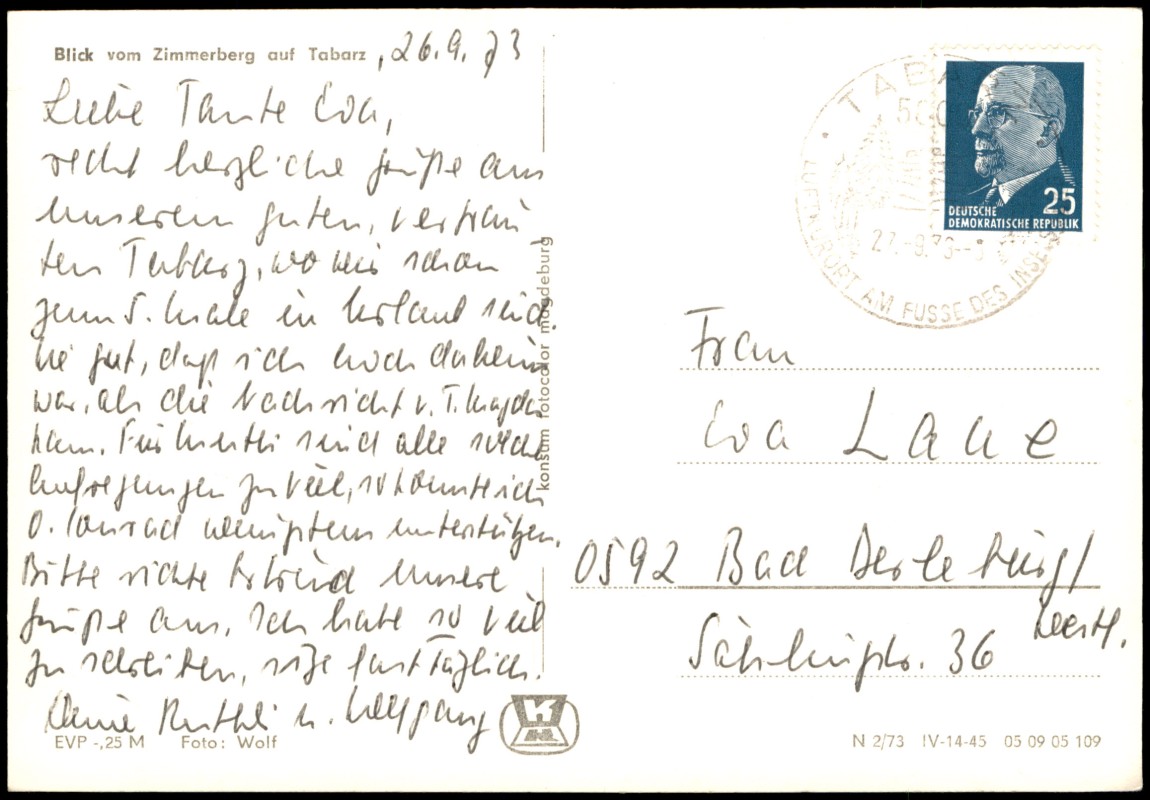 Blick vom Zimmerberg auf Tabarz, 26.9.73
Liebe Tante Eva,
recht herzliche Grüße aus
unserem guten, vertrau
ten Tabarz, wo wir schon
zum 5. Male in Urlaub sind.
Wie gut, daß ich noch daheim
war, als die Nachricht v. T. Magda
kam. Für Mutti sind alle solche
Aufregungen zu viel, so konnte ich
O. Conrad wenigstens unterstützen.
Bitte richte unsere
Grüße aus. Ich habe so viel
zu schreiben, sitze fast täglich.
Deine Ruthli u. Wolfgang
EVP -,25 M Foto: Wolf
konsum fotocolor magdeburg
TABA
580
LUFTKURORT AM FUSSE DES INSELS
27.-9.73--8
DEUTSCHE
DEMOKRATISCHE REPUBLIK
25
Frau
Eva Laue
0592 Bad Berleburg/
Westf.
36
N 2/73 IV-14-45 05 09 05 109